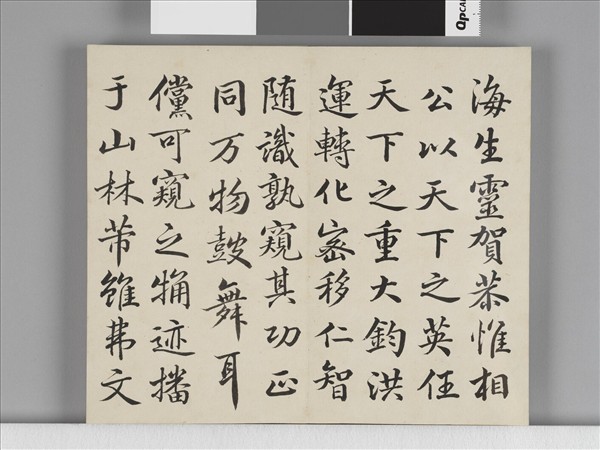 海生靈賀恭惟相
公以天下之英任
天下之重大鈞洪
運轉化密移仁智
随識孰窺其功正
同万物鼓舞耳
儻可窺之觕迹播
于山林芾雖弗文